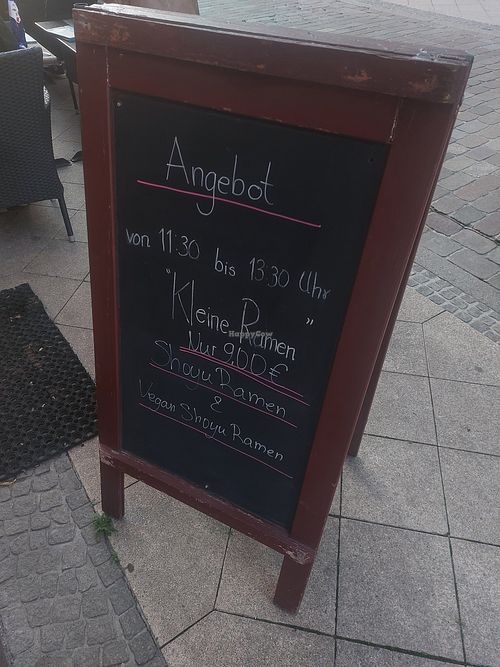 Angebot
von 11:30 bis 13:30 Uhr
"Kleine Ramen"
Nur 9,00€
Shoyu Ramen
&
Vegan Shoyu Ramen
HappyCow